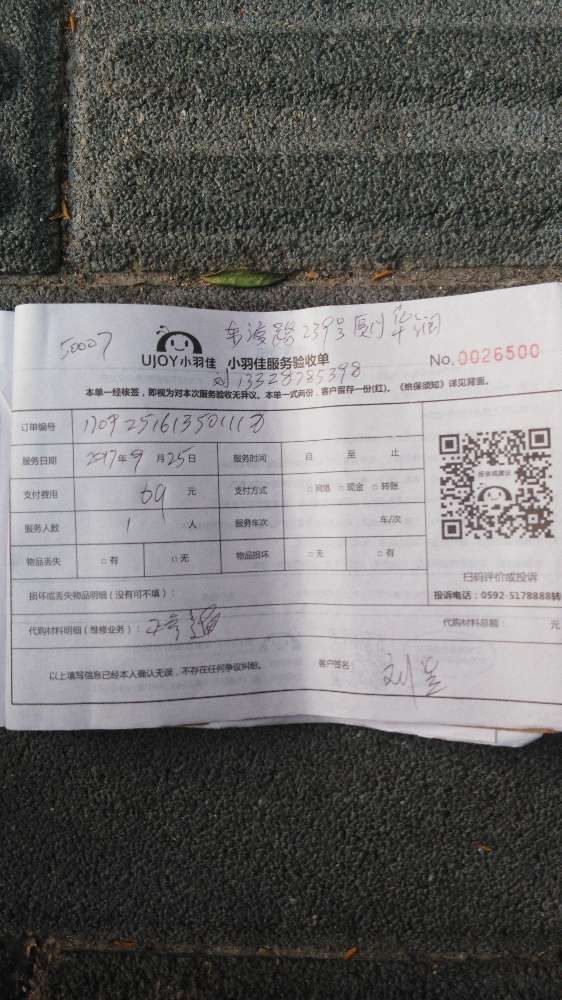 50007
路239号
UJOY小羽佳 小羽佳服务验收单 No.0026500
刘 13328785398
本单一经核签，即视为对本次服务验收无异议。本单一式两份，客户留存一份(红)。《维保须知》详见背面。
订单编号
服务日期 2017年9月25日 服务时间 自 至 止
支付费用 69 元 支付方式 □网络 □现金 □转账
服务人数 1 人 服务车次 车/次
物品丢失 □有 □无 物品损坏 □无 □有
损坏或丢失物品明细（没有可不填）：
代购材料明细（维修业务）： 代购材料总额： 元
以上填写信息已经本人确认无误，不存在任何争议纠纷。 客户签名： 刘
投诉或建议
扫码评价或投诉
投诉电话：0592-5178888转